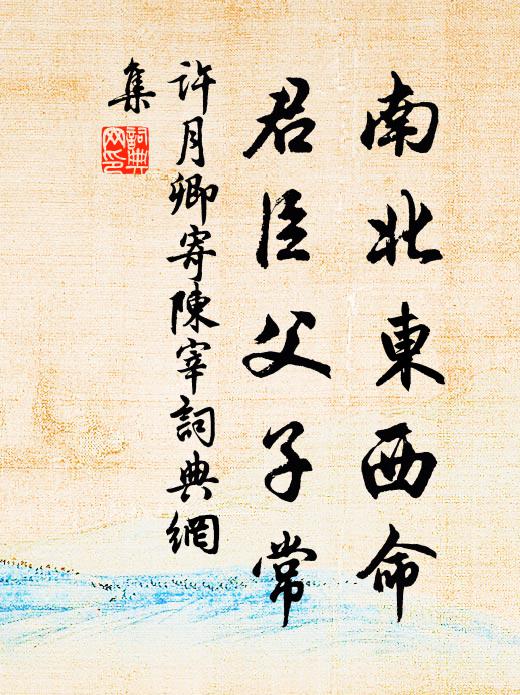 南北東西命
君臣父子常
許月卿寄陳宰詞典網
集
詞典
网印